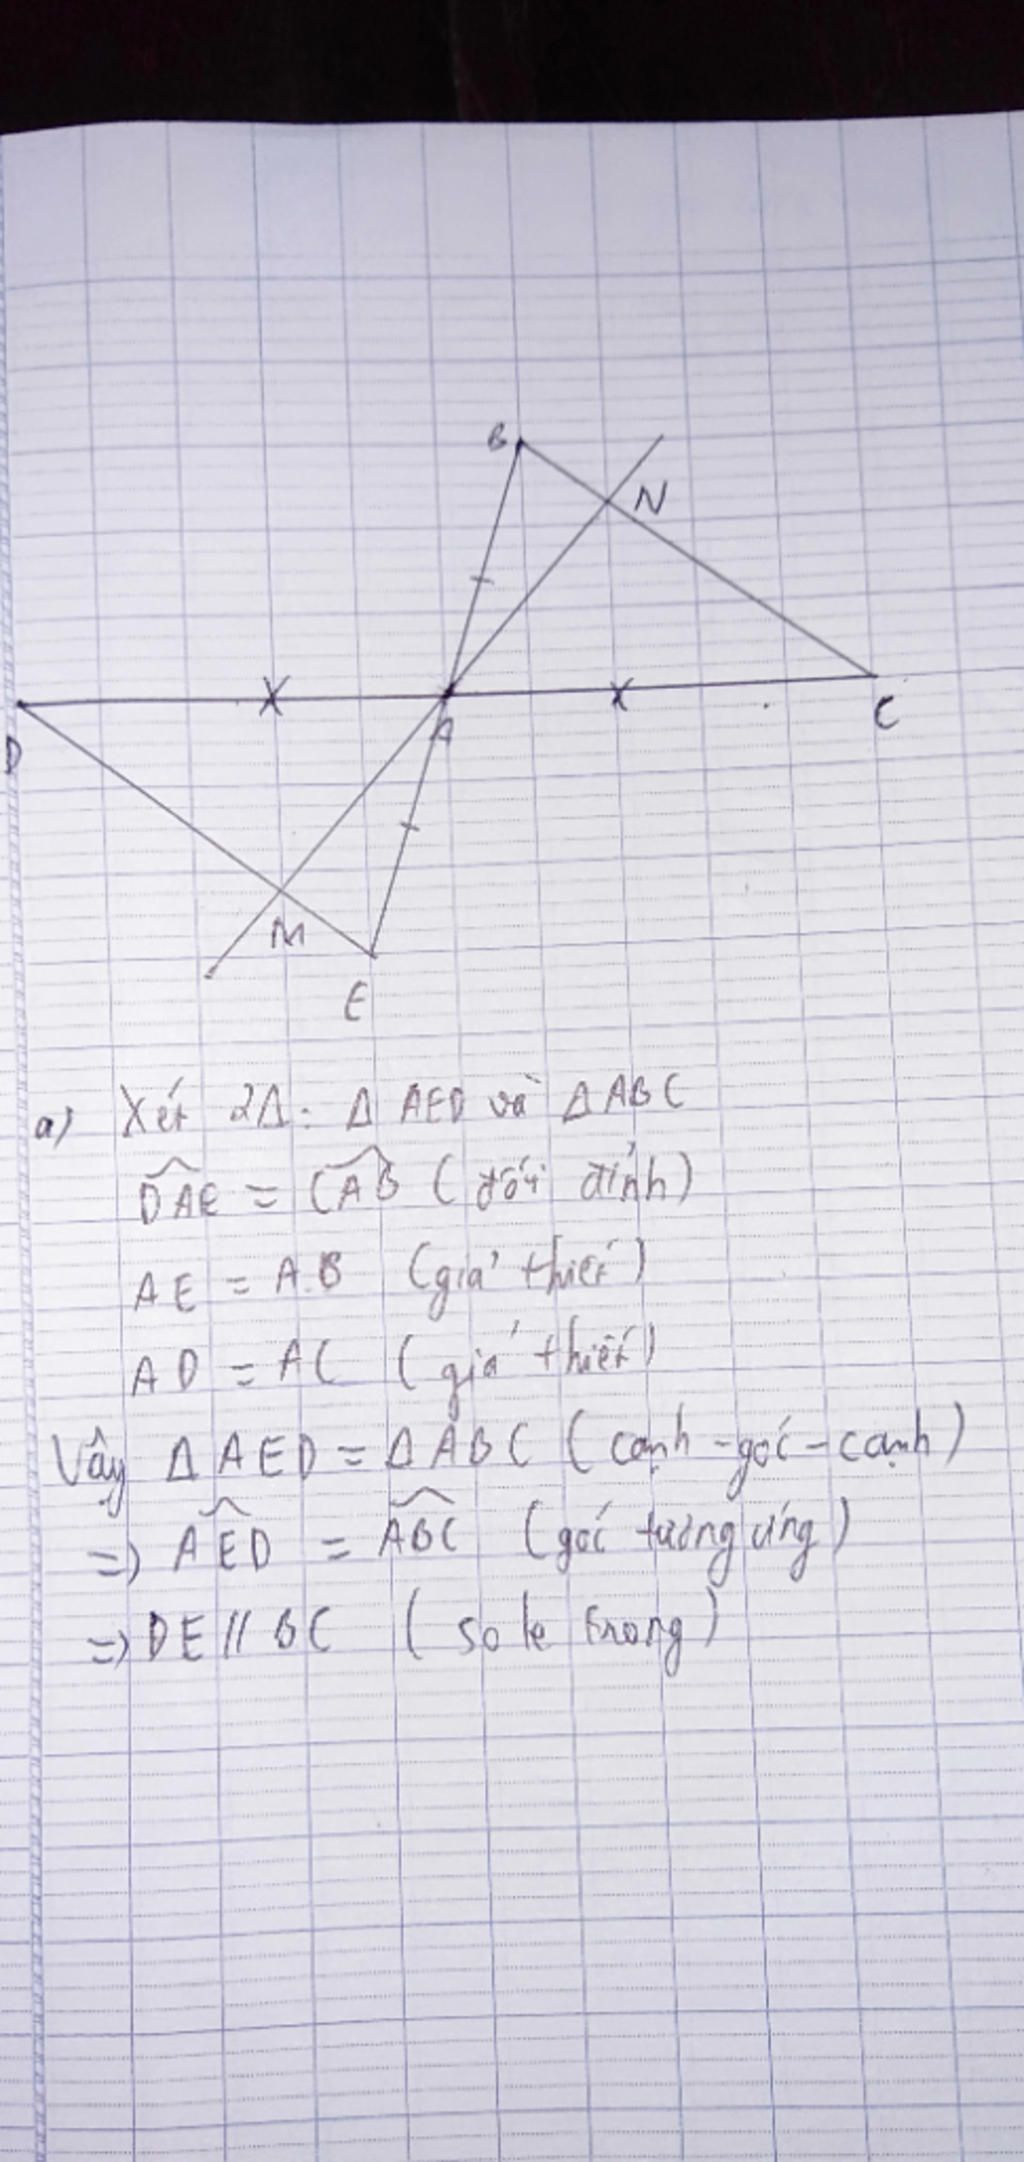 B
N
C
D
A
M
E
a) Xét 2Δ: Δ AED và Δ ABC
DAE = CAB (đối đỉnh)
AE = AB (giả thiết)
AD = AC (giả thiết)
Vậy Δ AED = Δ ABC (cạnh - góc - cạnh)
=> AED = ABC (góc tương ứng)
=> DE // BC (so le trong)